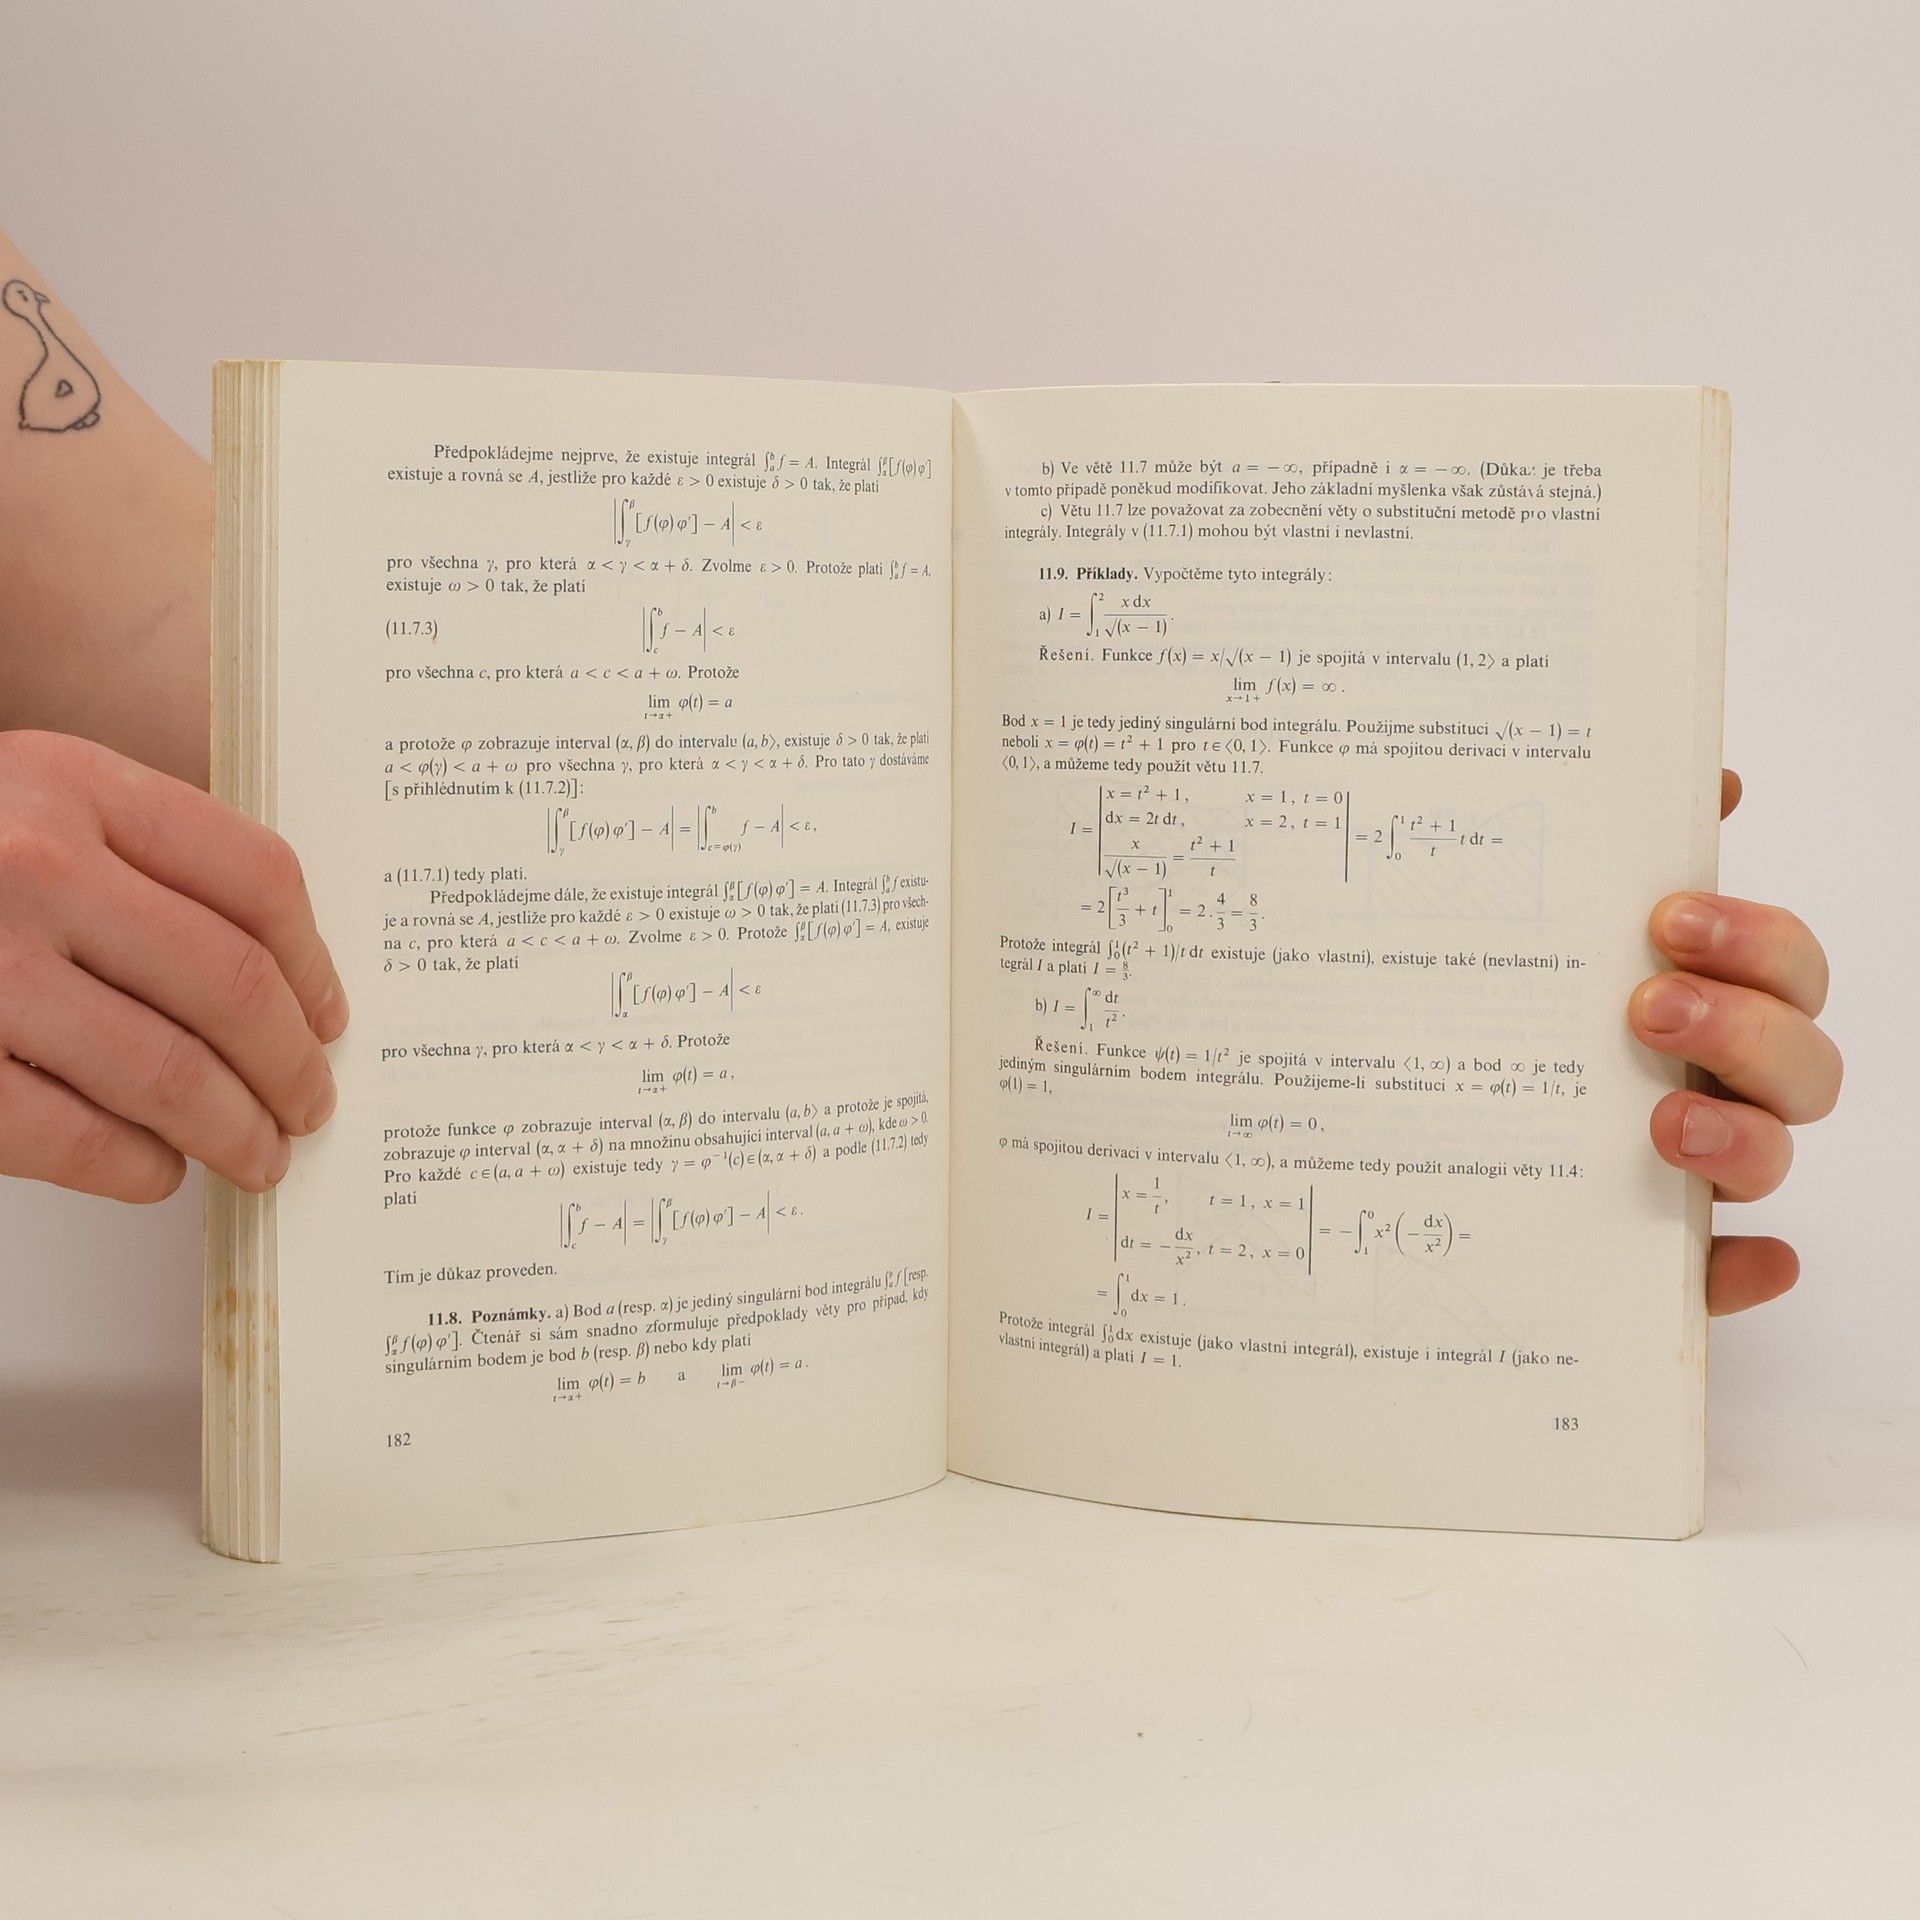 Předpokládejme nejprve, že existuje integrál ∫ₐᵇ f = A. Integrál ∫_α^β [f(φ) φ′]
existuje a rovná se A, jestliže pro každé ε > 0 existuje δ > 0 tak, že platí
|∫_γ^β [f(φ) φ′] − A| < ε
pro všechna γ, pro která α < γ < α + δ. Zvolme ε > 0. Protože platí ∫ₐᵇ f = A,
existuje ω > 0 tak, že platí
(11.7.3) |∫_c^b f − A| < ε
pro všechna c, pro která a < c < a + ω. Protože
lim_{t→α+} φ(t) = a
a protože φ zobrazuje interval (α, β) do intervalu (a, b⟩, existuje δ > 0 tak, že platí
a < φ(γ) < a + ω pro všechna γ, pro která α < γ < α + δ. Pro tato γ dostáváme
[s přihlédnutím k (11.7.2)]:
|∫_γ^β [f(φ) φ′] − A| = |∫_{c=φ(γ)}^b f − A| < ε,
a (11.7.1) tedy platí.
Předpokládejme dále, že existuje integrál ∫_α^β [f(φ) φ′] = A. Integrál ∫ₐᵇ f existu-
je a rovná se A, jestliže pro každé ε > 0 existuje ω > 0 tak, že platí (11.7.3) pro všech-
na c, pro která a < c < a + ω. Zvolme ε > 0. Protože ∫_α^β [f(φ) φ′] = A, existuje
δ > 0 tak, že platí
|∫_α^β [f(φ) φ′] − A| < ε
pro všechna γ, pro která α < γ < α + δ. Protože
lim_{t→α+} φ(t) = a,
protože funkce φ zobrazuje interval (α, β) do intervalu (a, b⟩ a protože je spojitá,
zobrazuje φ interval (α, α + δ) na množinu obsahující interval (a, a + ω), kde ω > 0.
Pro každé c ∈ (a, a + ω) existuje tedy γ = φ⁻¹(c) ∈ (α, α + δ) a podle (11.7.2) tedy
platí
|∫_c^b f − A| = |∫_γ^β [f(φ) φ′] − A| < ε.
Tím je důkaz proveden.
11.8. Poznámky. a) Bod a (resp. α) je jediný singulární bod integrálu ∫ₐᵇ f [resp.
∫_α^β f(φ) φ′]. Čtenář si sám snadno zformuluje předpoklady věty pro případ, kdy
singulárním bodem je bod b (resp. β) nebo kdy platí
lim_{t→α+} φ(t) = b a lim_{t→β−} φ(t) = a.
182
b) Ve větě 11.7 může být a = −∞, případně i α = −∞. (Důkaz je třeba
v tomto případě poněkud modifikovat. Jeho základní myšlenka však zůstává stejná.)
c) Větu 11.7 lze považovat za zobecnění věty o substituční metodě pro vlastní
integrály. Integrály v (11.7.1) mohou být vlastní i nevlastní.
11.9. Příklady. Vypočtěme tyto integrály:
a) I = ∫₁² x dx / √(x − 1).
Řešení. Funkce f(x) = x/√(x − 1) je spojitá v intervalu (1, 2⟩ a platí
lim_{x→1+} f(x) = ∞.
Bod x = 1 je tedy jediný singulární bod integrálu. Použijme substituci √(x − 1) = t
neboli x = φ(t) = t² + 1 pro t ∈ ⟨0, 1⟩. Funkce φ má spojitou derivaci v intervalu
⟨0, 1⟩, a můžeme tedy použít větu 11.7.
I = | x = t² + 1, x = 1, t = 0 |
| dx = 2t dt, x = 2, t = 1 | = 2 ∫₀¹ (t² + 1)/t t dt =
| x/√(x − 1) = (t² + 1)/t |
= 2 [t³/3 + t]₀¹ = 2 . 4/3 = 8/3.
Protože integrál ∫₀¹(t² + 1)/t dt existuje (jako vlastní), existuje také (nevlastní) in-
tegrál I a platí I = 8/3.
b) I = ∫₁^∞ dt/t².
Řešení. Funkce ψ(t) = 1/t² je spojitá v intervalu ⟨1, ∞) a bod ∞ je tedy
jediným singulárním bodem integrálu. Použijeme-li substituci x = φ(t) = 1/t, je
φ(1) = 1,
lim_{t→∞} φ(t) = 0,
φ má spojitou derivaci v intervalu ⟨1, ∞), a můžeme tedy použít analogii věty 11.4:
I = | x = 1/t, t = 1, x = 1 |
| dt = −dx/x², t = 2, x = 0 | = −∫₁⁰ x² (−dx/x²) =
= ∫₀¹ dx = 1.
Protože integrál ∫₀¹ dx existuje (jako vlastní integrál), existuje i integrál I (jako ne-
vlastní integrál) a platí I = 1.
183